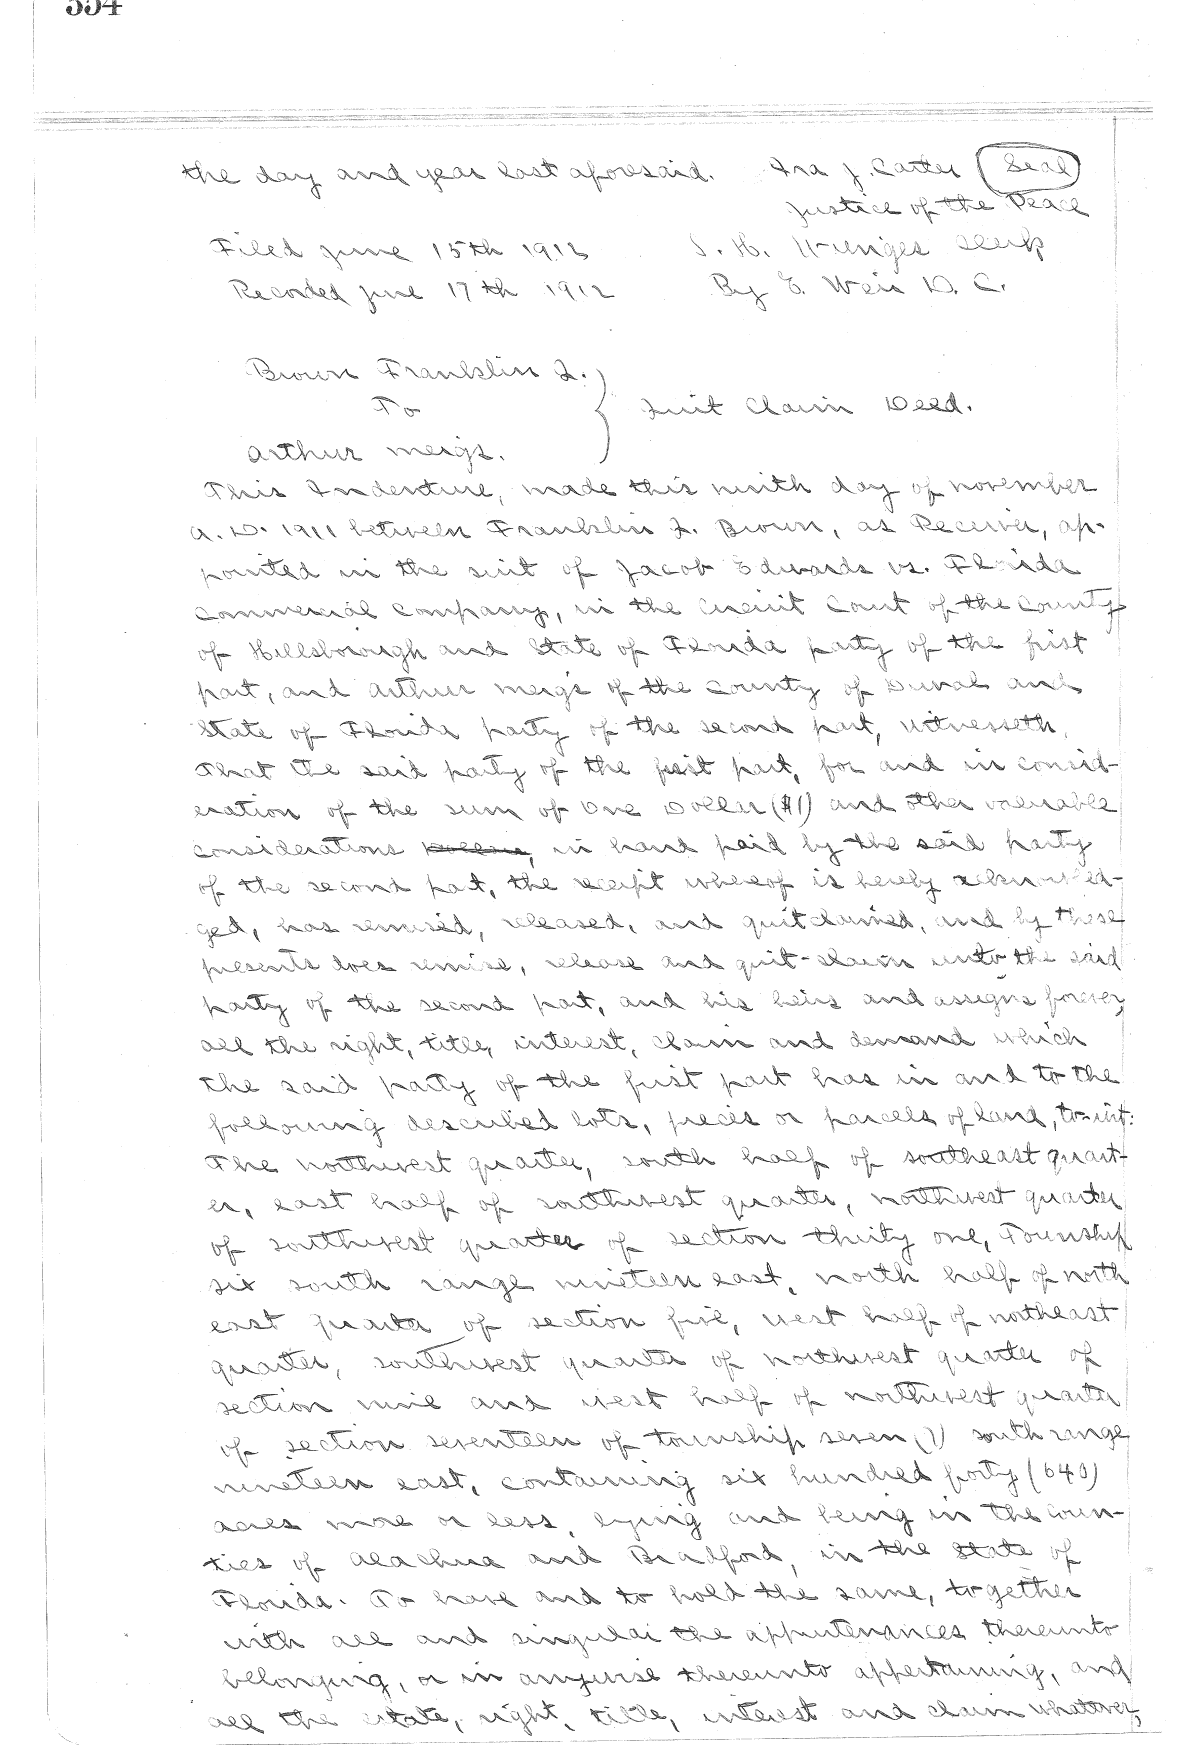 554
the day and year last aforesaid. Ira J. Carter (Seal)
Justice of the Peace
Filed June 15th 1912 S. H. Wienges Clerk
Recorded June 17th 1912 By E. Weis D. C.
Brown Franklin Q.
To } Quit Claim Deed.
Arthur Meigs.
This Indenture, made this ninth day of November
A. D. 1911 between Franklin Q. Brown, as Receiver, ap-
pointed in the suit of Jacob Edwards vs. Florida
Commercial Company, in the Circuit Court of the County
of Hillsborough and State of Florida party of the first
part, and Arthur Meigs of the County of Duval and
State of Florida party of the second part, witnesseth,
That the said party of the first part, for and in consid-
eration of the sum of One Dollar ($1) and other valuable
considerations in hand paid by the said party
of the second part, the receipt whereof is hereby acknowled-
ged, has remised, released, and quitclaimed, and by these
presents does remise, release and quit-claim unto the said
party of the second part, and his heirs and assigns forever,
all the right, title, interest, claim and demand which
the said party of the first part has in and to the
following described lots, pieces or parcels of land, to-wit:
The northwest quarter, south half of southeast quart-
er, east half of southwest quarter, northwest quarter
of southwest quarter of section thirty one, Township
six south range nineteen east, north half of north
east quarter of section five, west half of northeast
quarter, southwest quarter of northwest quarter of
section nine and west half of northwest quarter
of section seventeen of township seven (7) south range
nineteen east, containing six hundred forty (640)
acres more or less, lying and being in the coun-
ties of Alachua and Bradford, in the State of
Florida. To have and to hold the same, together
with all and singular the appurtenances thereunto
belonging, or in anywise thereunto appertaining, and
all the estate, right, title, interest and claim whatever,